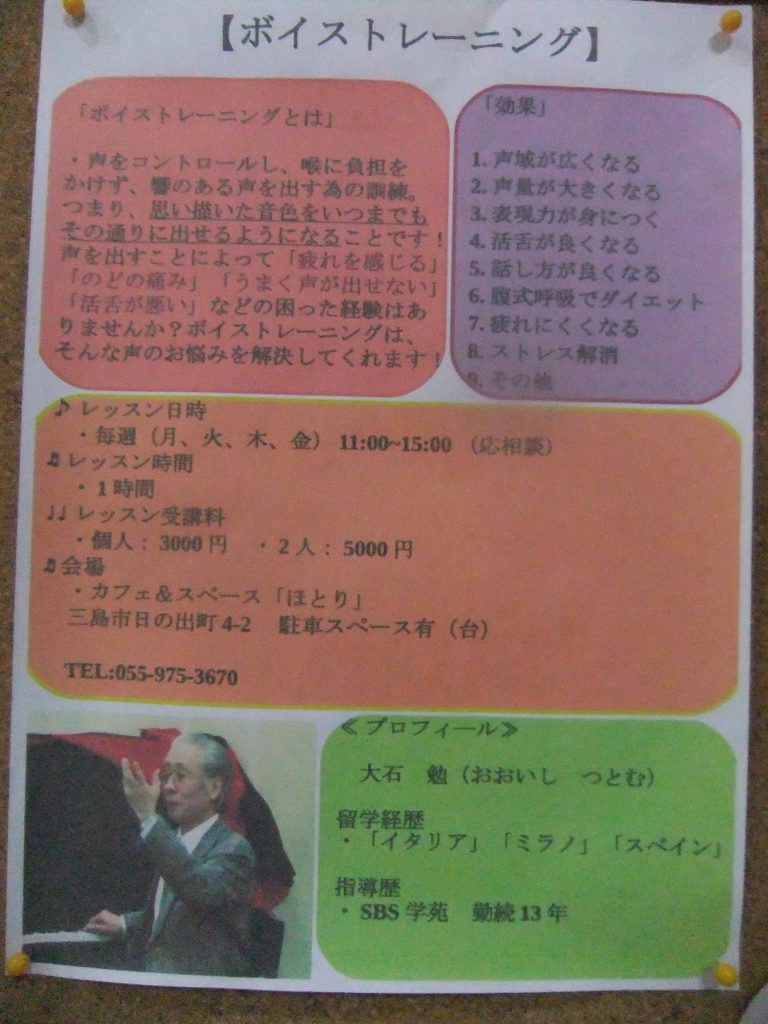 【ボイストレーニング】
「ボイストレーニングとは」
・声をコントロールし、喉に負担を
かけず、響のある声を出す為の訓練。
つまり、思い描いた音色をいつまでも
その通りに出せるようになることです！
声を出すことによって「疲れを感じる」
「のどの痛み」「うまく声が出せない」
「活舌が悪い」などの困った経験はあ
りませんか？ボイストレーニングは、
そんな声のお悩みを解決してくれます！
「効果」
1. 声域が広くなる
2. 声量が大きくなる
3. 表現力が身につく
4. 活舌が良くなる
5. 話し方が良くなる
6. 腹式呼吸でダイエット
7. 疲れにくくなる
8. ストレス解消
9. その他
♪ レッスン日時
・毎週（月、火、木、金） 11:00~15:00 （応相談）
♬ レッスン時間
・1 時間
♩♩ レッスン受講料
・個人： 3000 円 ・2 人： 5000 円
♬ 会場
・カフェ＆スペース「ほとり」
三島市日の出町 4-2 駐車スペース有（台）
TEL:055-975-3670
≪プロフィール≫
大石 勉（おおいし つとむ）
留学経歴
・「イタリア」「ミラノ」「スペイン」
指導歴
・SBS 学苑 勤続 13 年